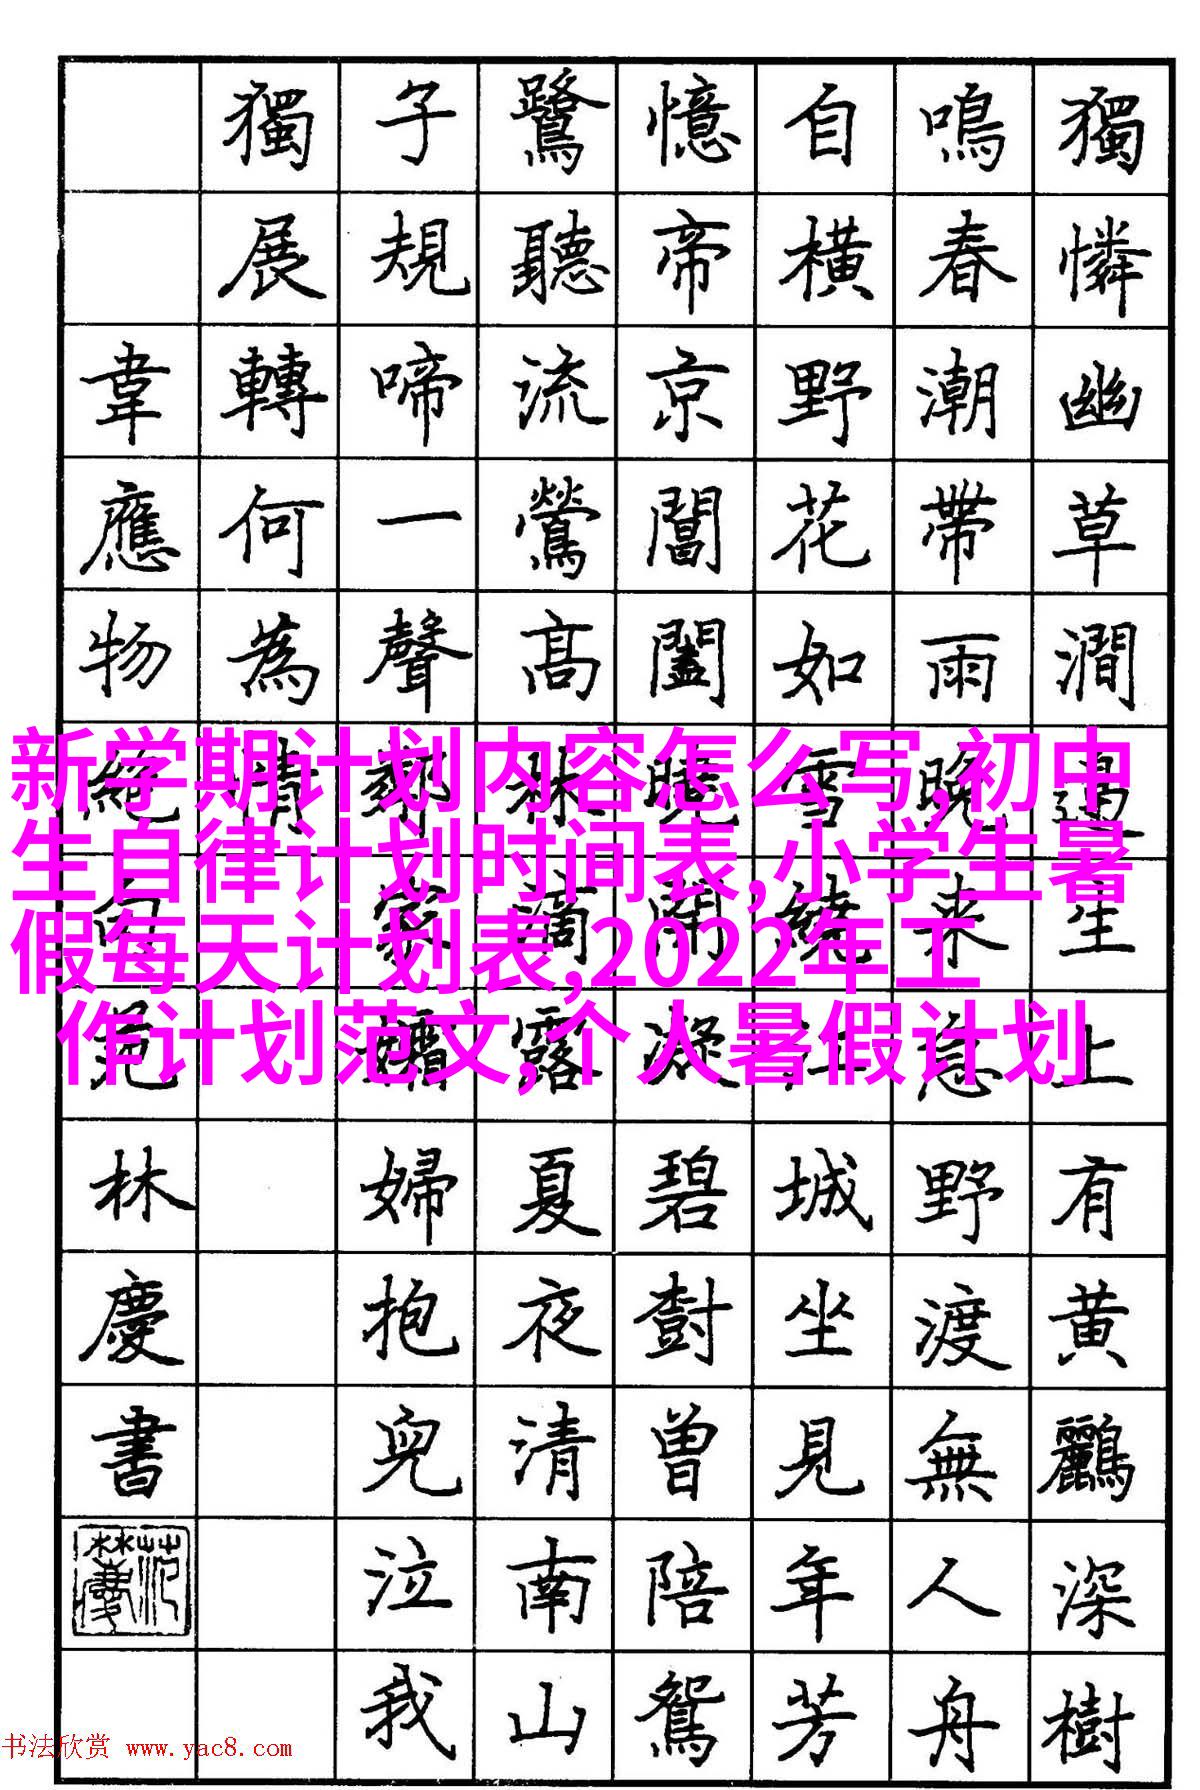 獨憐幽草澗邊生上有黄鸝深樹
鳴春潮帶雨晚来急野渡無人舟
自横野花如雪繞江城坐見年芳
憶帝京閶闔曉開凝碧樹曾陪鴛
鷺聽流鶯高林滴露夏夜清南山
子規啼一聲鄰家孀婦抱兒泣我
獨展轉何為情
韋應物絕句范林慶書
新学期计划内容怎么写,初中
生自律计划时间表,小学生暑
假每天计划表,2022年工
作计划范文,个人暑假计划
书法欣赏 www.yac8.com